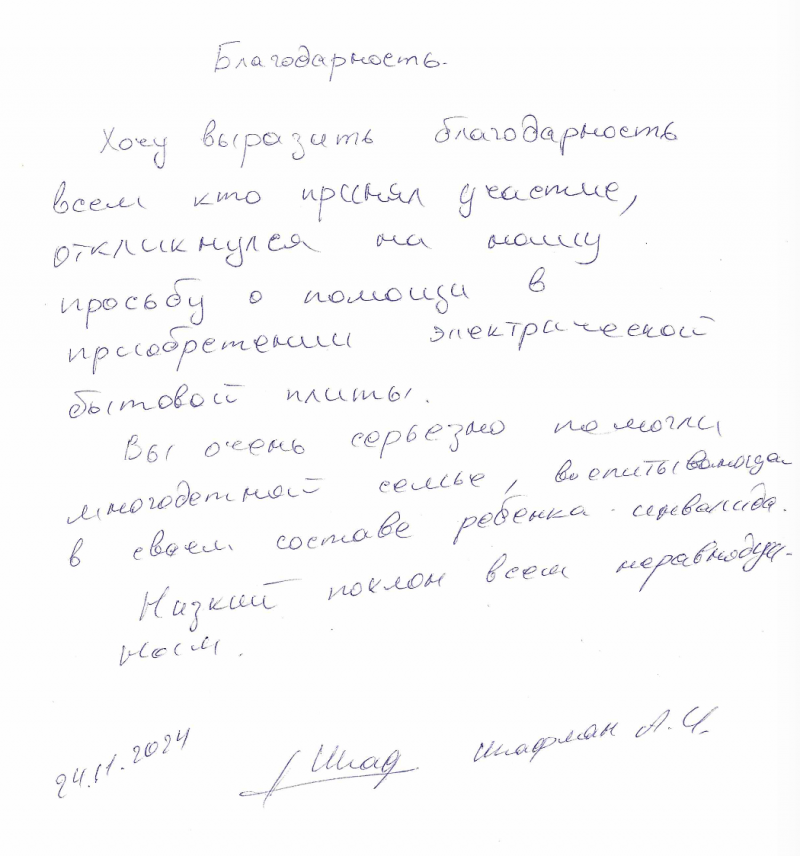 Благодарность.
Хочу выразить благодарность
всем кто принял участие,
откликнулся на нашу
просьбу о помощи в
приобретении электрической
бытовой плиты.
Вы очень серьезно помогли
многодетной семье,
в своем составе ребенка-инвалида.
Низкий поклон всем неравнодуш-
ным.
24.11.2024 Шаф Шафман А.И.